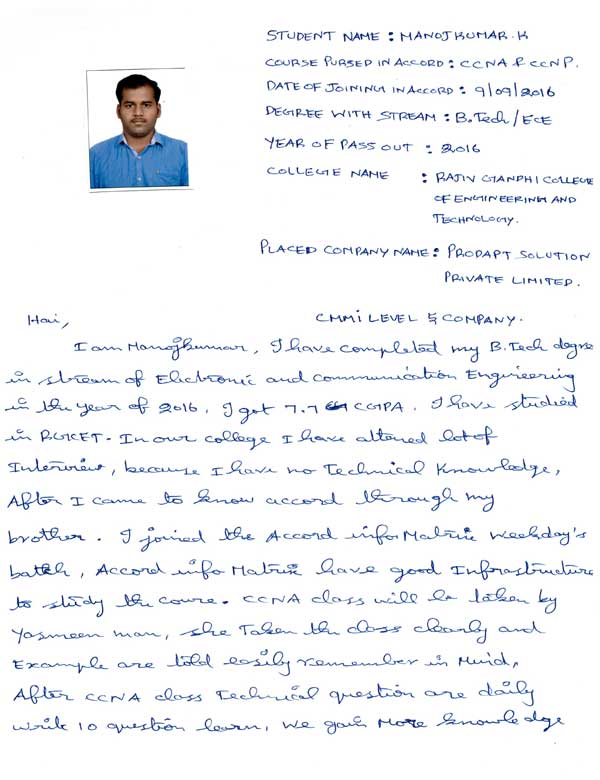 STUDENT NAME : MANOJ KUMAR. K
COURSE PURSED IN ACCORD : CCNA & CCNP.
DATE OF JOINING IN ACCORD : 9/09/2016
DEGREE WITH STREAM : B.Tech / ECE
YEAR OF PASS OUT : 2016
COLLEGE NAME : RAJIV GANDHI COLLEGE
OF ENGINEERING AND
TECHNOLOGY.
PLACED COMPANY NAME : PRODAPT SOLUTION
PRIVATE LIMITED.
CMMI LEVEL 5 COMPANY.
Hai,
I am Manojkumar, I have completed my B.Tech degree
in stream of Electronic and communication Engineering
in the year of 2016. I got 7.7 CGPA. I have studied
in RGCET. In our college I have attened lot of
Interview, because I have no Technical Knowledge,
After I came to know accord through my
brother. I joined the Accord info Matrix Weekday's
batch, Accord info Matrix have good Infrastructure
to study the course. CCNA class will be taken by
Yasmeen mam, she Taken the class clearly and
Example are told easily remember in Mind,
After CCNA class Technical question are daily
write 10 question learn, we gain More knowledge